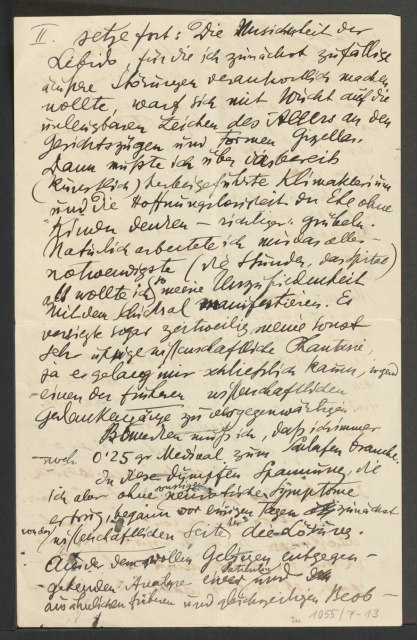 II. setze fort: Die Unsicherheit der
Lebido, für die ich zunächst zufällige
äußere Störungen verantwortlich machen
wollte, warf sich mit Wucht auf die
unleugbaren Zeichen des Alters an den
Gesichtszügen und Formen Gizellas.
Dann mußte ich über das bereits
(künstlich) herbeigeführte Klimakterium
und die Hoffnungslosigkeit der Ehe ohne
Kinder denken – richtiger: grübeln.
Natürlich arbeitete ich nur das aller-
notwendigste (die Stunden, das Spital)
als wollte ich so meine Unzufriedenheit
mit dem Schicksal manifestieren. Es
versiegte sogar zeitweilig meine sonst
sehr üppige wissenschaftliche Phantasie,
ja es gelang mir schließlich kaum, irgend
-einen der früheren wissenschaftlichen
Gedankengänge zu vergegenwärtigen.
Bemerken muß ich, daß ich immer
-noch 0'25 gr Medinal zum Schlafen brauche.
In diese dumpfen Spannung, die
ich aber ohne sonstige neurotische Symptome
ertrug, begann vor einigen Tagen zunächst
von der wissenschaftlichen Seite her die Lösung.
Außer dem vollen Gelingen entgegen-
-gehenden Analyse einer Patientin und
aus ähnlichen früheren und gleichzeitigen Beob-
zu 1055/9-13